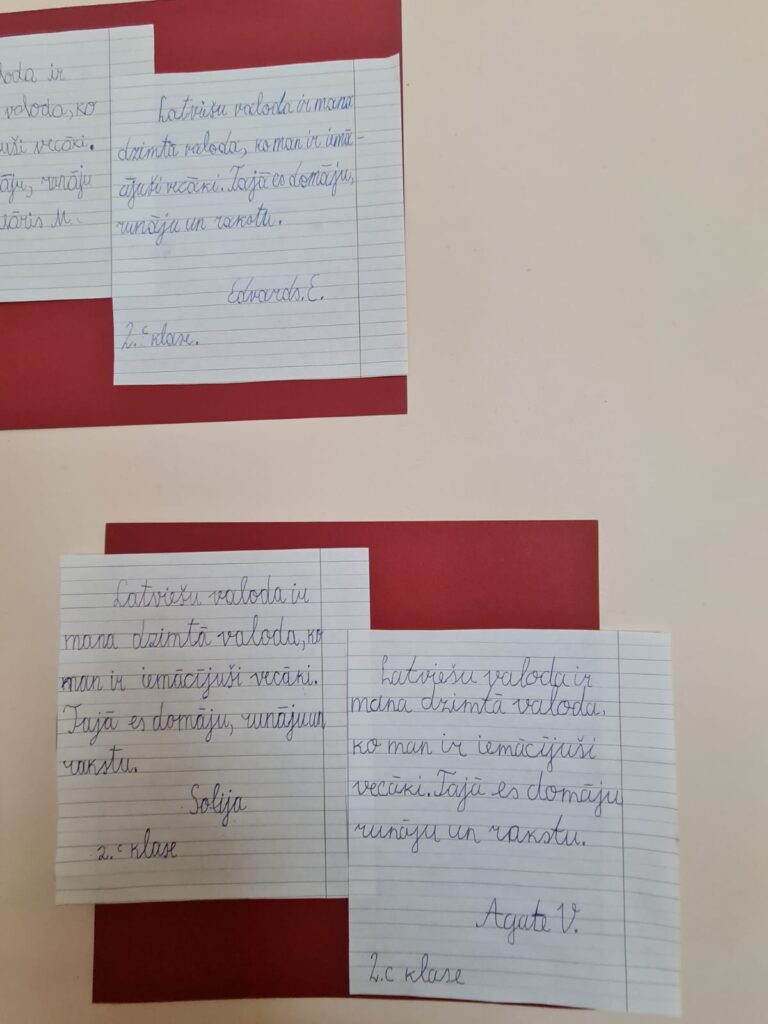 loda ir
valoda, ko
uši vecāki.
āju, runāju
tāris M.
Latviešu valoda ir mana
dzimtā valoda, ko man ir iemā-
cījuši vecāki. Tajā es domāju,
runāju un rakstu.
Edvards. E.
2. c klase.
Latviešu valoda ir
mana dzimtā valoda, ko
man ir iemācījuši vecāki.
Tajā es domāju, runāju un
rakstu.
Solija
2. c klase
Latviešu valoda ir
mana dzimtā valoda,
ko man ir iemācījuši
vecāki. Tajā es domāju
runāju un rakstu.
Agate V.
2. c klase